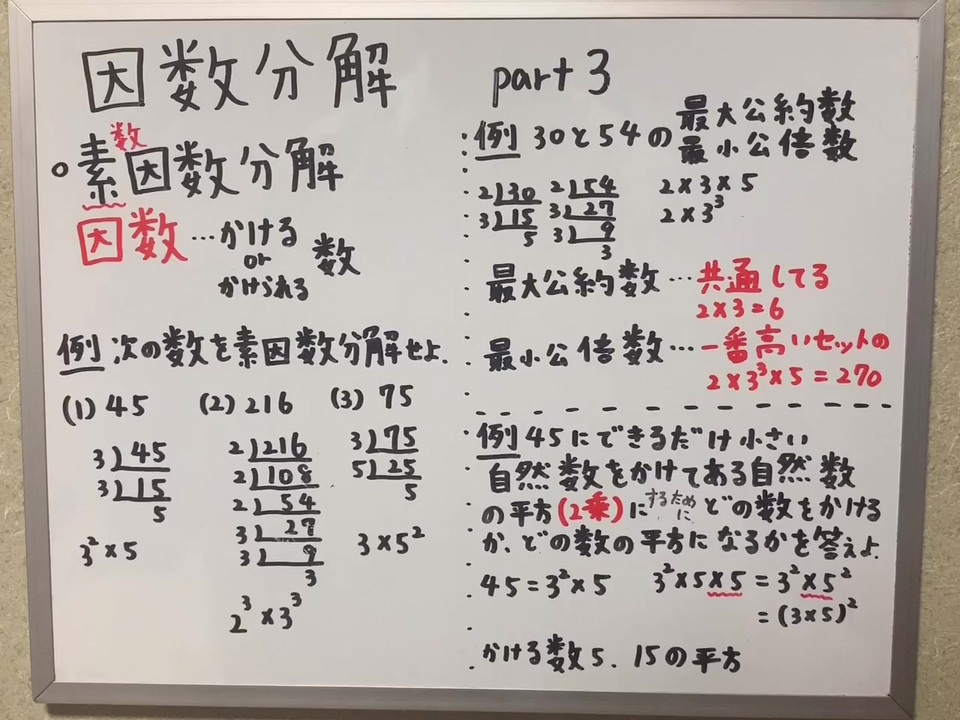 因数分解
part 3
数
○素因数分解
因数…かける
or
かけられる
数
例 次の数を素因数分解せよ.
(1) 45 (2) 216 (3) 75
3 45
3 15
5
3²×5
2 216
2 108
2 54
3 27
3 9
3
2³×3³
3 75
5 25
5
3×5²
例 30と54の
最大公約数
最小公倍数
2 30
3 15
5
2 54
3 27
3 9
3
2×3×5
2×3³
最大公約数…共通してる
2×3=6
最小公倍数…一番高いセットの
2×3³×5=270
例 45にできるだけ小さい
自然数をかけてある自然数
の平方(2乗)にするために どの数をかける
か、どの数の平方になるかを答えよ.
45=3²×5 3²×5×5=3²×5²
=(3×5)²
かける数5、15の平方